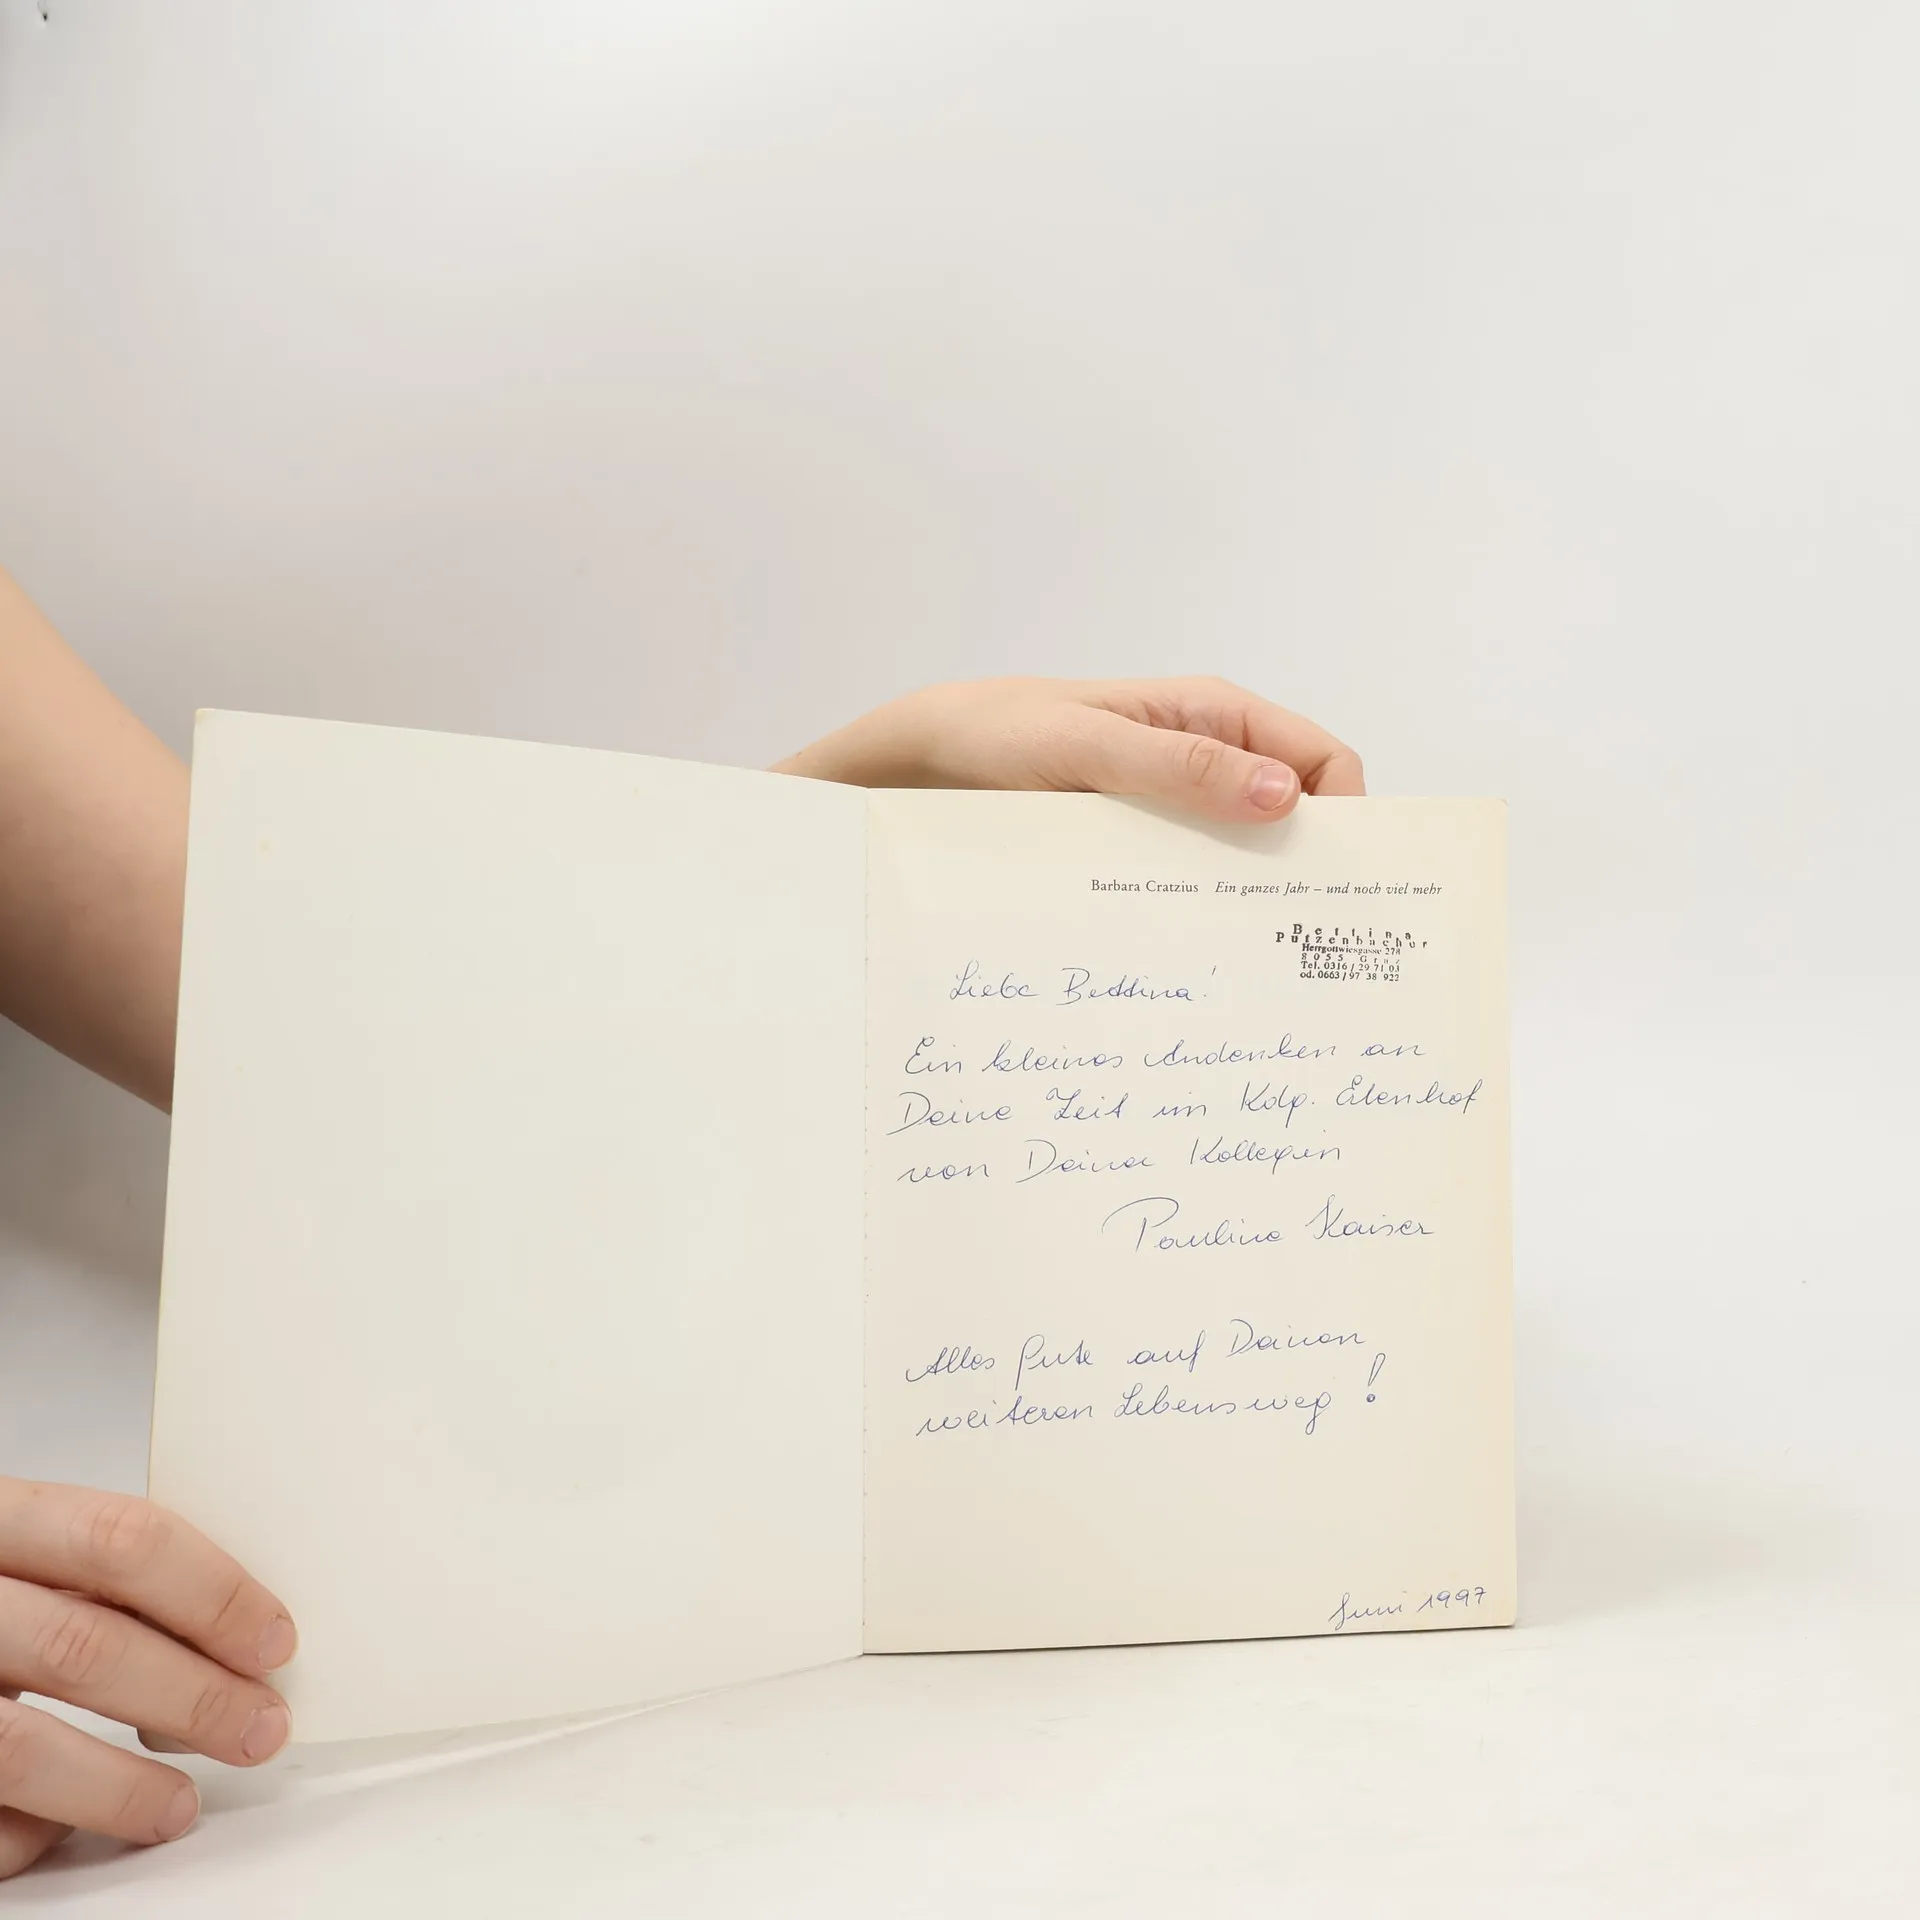 Barbara Cratzius Ein ganzes Jahr – und noch viel mehr
Bettina
Putzenbacher
Herrgottwiesgasse 278
8055 Graz
Tel. 0316 / 29 71 03
od. 0663 / 97 38 922
Liebe Bettina!
Ein kleines Andenken an
Deine Zeit im Kdg. Erlenhof
von Deiner Kollegin
Pauline Kaiser
Alles Gute auf Deinen
weiteren Lebensweg!
Juni 1997